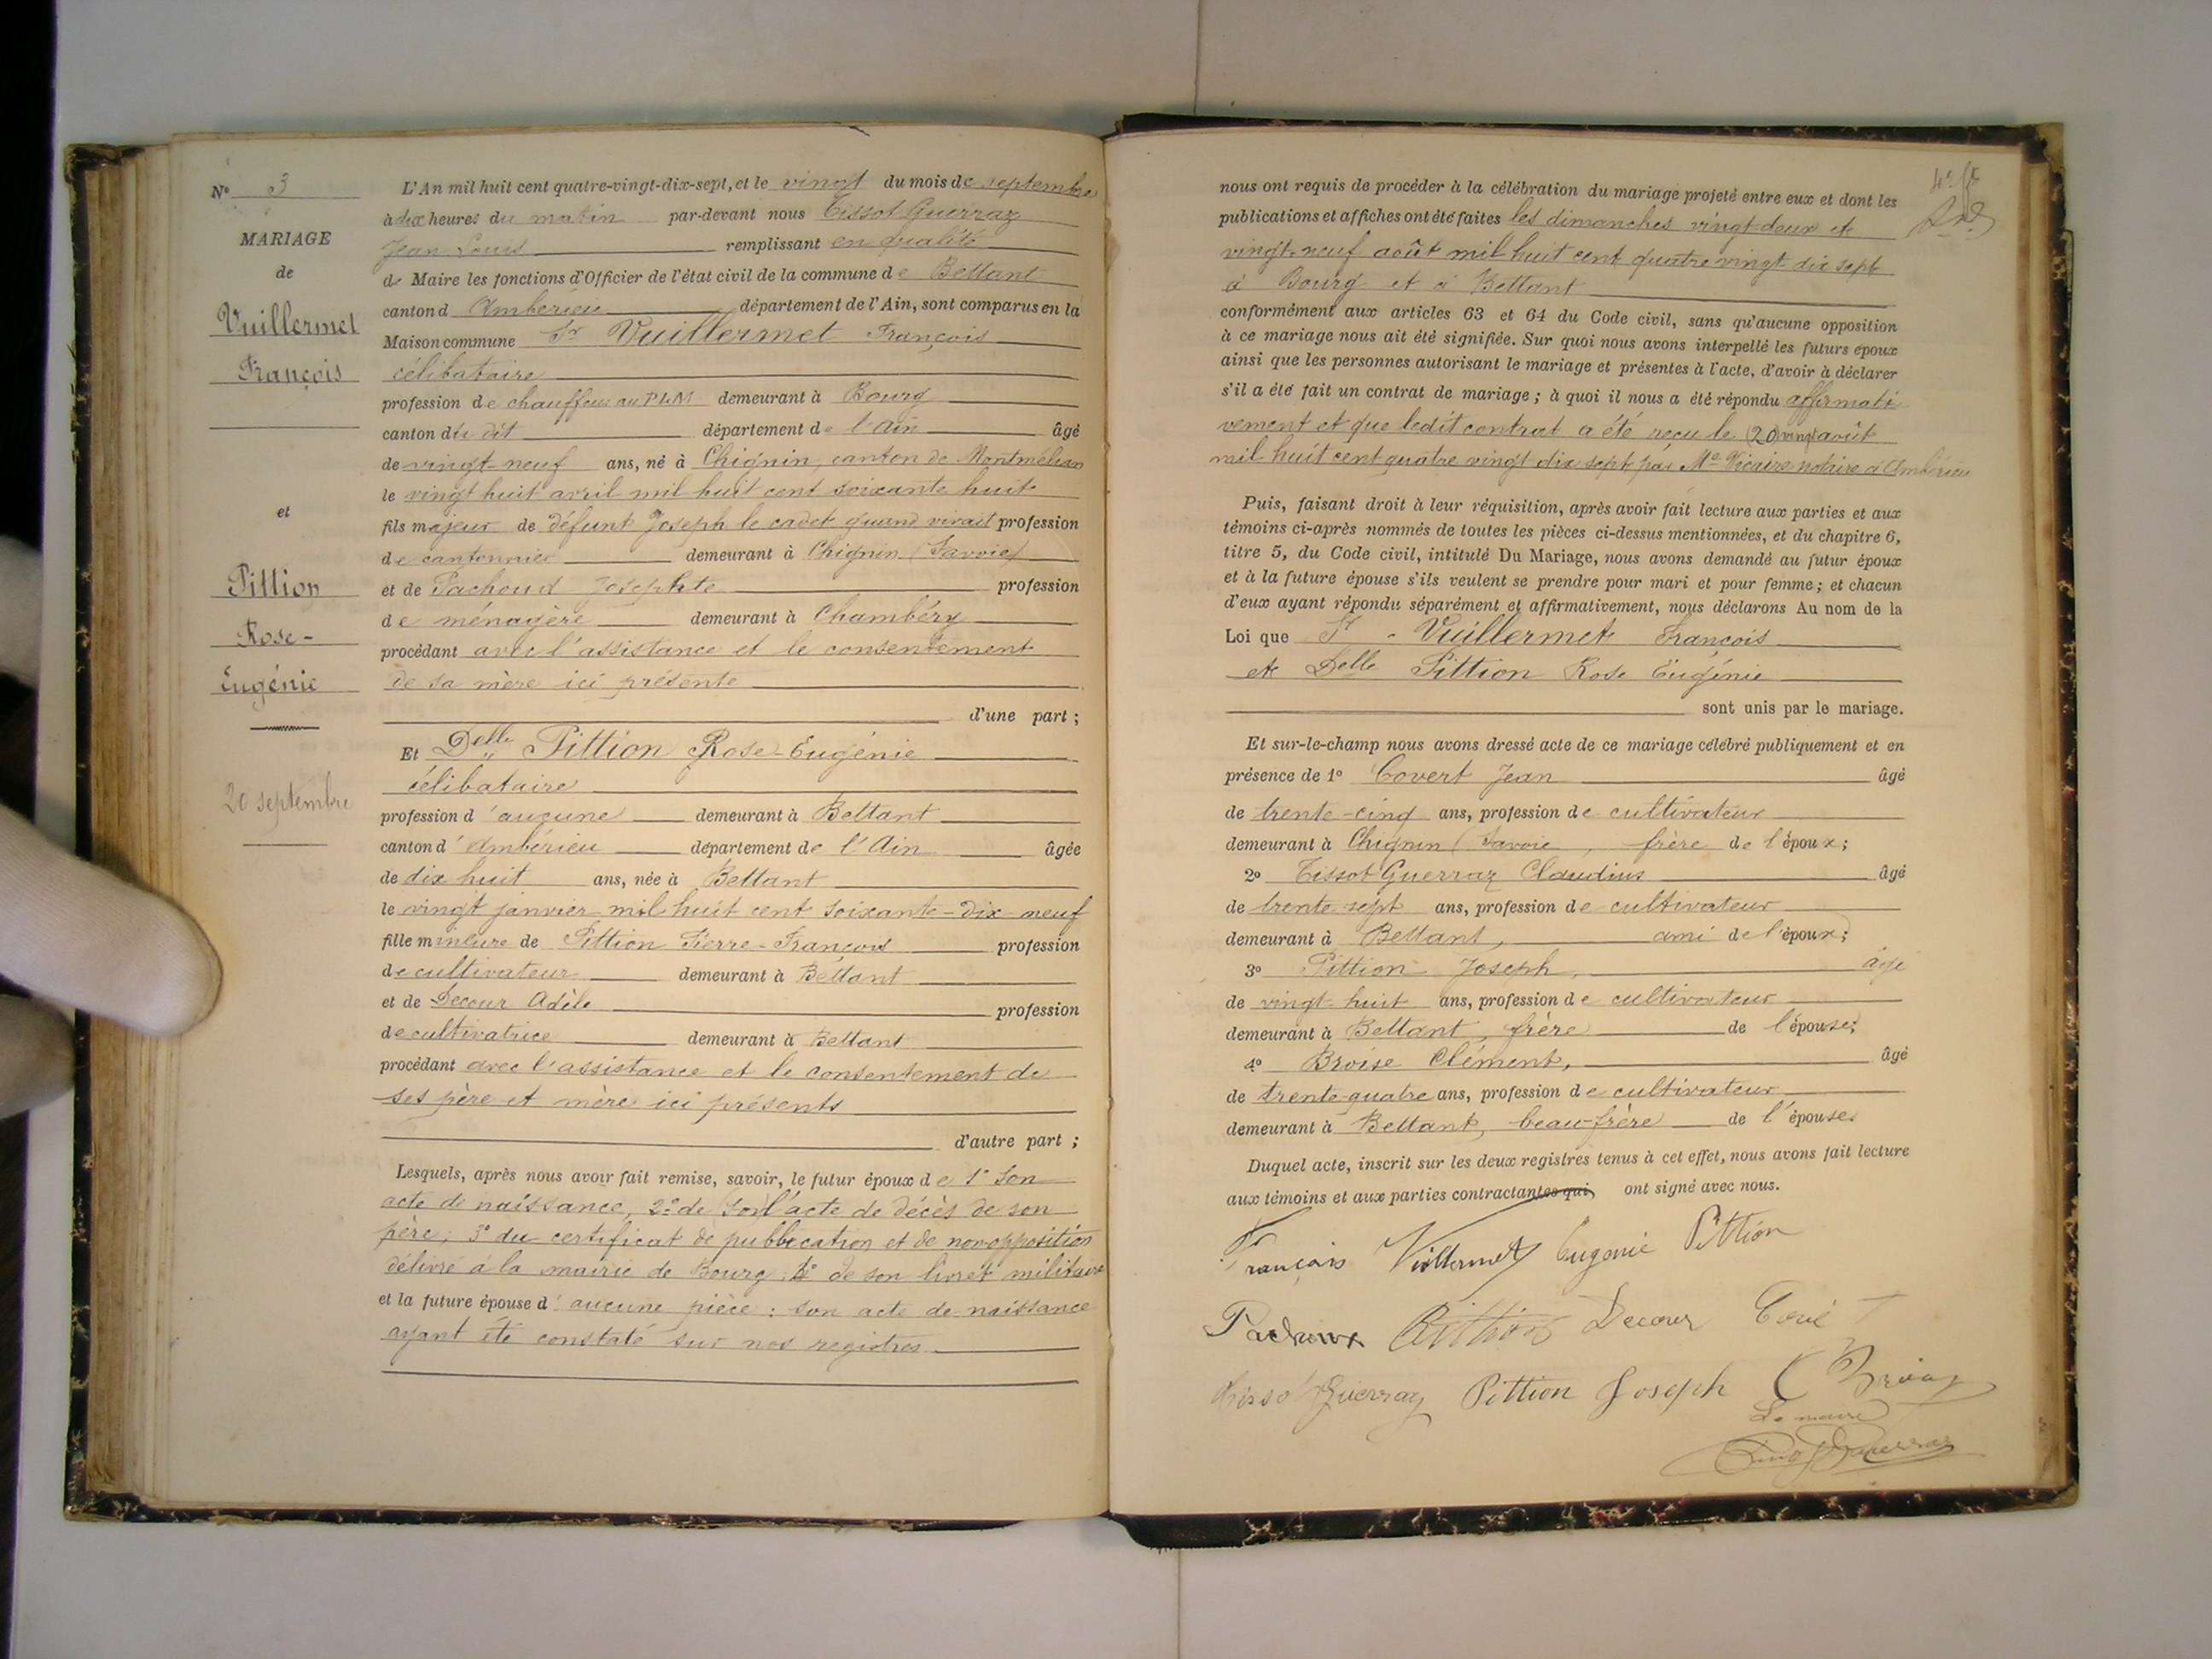 N° 3
MARIAGE
de
Vuillermet
François
et
Pittion
Rose-
Eugénie
20 septembre
L'An mil huit cent quatre-vingt-dix-sept, et le vingt du mois de septembre
à dix heures du matin par-devant nous Tissot Guerraz
Jean Louis remplissant en qualité
de Maire les fonctions d'Officier de l'état civil de la commune de Bettant
canton d Ambérieu département de l'Ain, sont comparus en la
Maison commune Sr Vuillermet François
célibataire
profession de chauffeur au PLM demeurant à Bourg
canton du dit département de l'Ain âgé
de vingt-neuf ans, né à Chignin, canton de Montmélian
le vingt huit avril mil huit cent soixante huit
fils majeur de défunt Joseph le cadet quand vivait profession
de cantonnier demeurant à Chignin (Savoie)
et de Pachoud Josephte profession
de ménagère demeurant à Chambéry
procédant avec l'assistance et le consentement
de sa mère ici présente
d'une part ;
Et Delle Pittion Rose-Eugénie
célibataire
profession d'aucune demeurant à Bettant
canton d'Ambérieu département de l'Ain âgée
de dix huit ans, née à Bettant
le vingt janvier mil huit cent soixante-dix-neuf
fille mineure de Pittion Pierre-François profession
de cultivateur demeurant à Bettant
et de Decour Adèle profession
de cultivatrice demeurant à Bettant
procédant avec l'assistance et le consentement de
ses père et mère ici présents
d'autre part ;
Lesquels, après nous avoir fait remise, savoir, le futur époux de 1° Son
acte de naissance, 2° de l'acte de décès de son
père; 3° du certificat de pubblication et de non-opposition
délivré à la mairie de Bourg; 4° de son livret militaire
et la future épouse d'aucune pièce : son acte de naissance
ayant été constaté sur nos registres
nous ont requis de procéder à la célébration du mariage projeté entre eux et dont les
publications et affiches ont été faites les dimanches vingt-deux et
vingt-neuf août mil huit cent quatre vingt dix sept
à Bourg et à Bettant
conformément aux articles 63 et 64 du Code civil, sans qu'aucune opposition
à ce mariage nous ait été signifiée. Sur quoi nous avons interpellé les futurs époux
ainsi que les personnes autorisant le mariage et présentes à l'acte, d'avoir à déclarer
s'il a été fait un contrat de mariage ; à quoi il nous a été répondu affirmati
vement et que ledit contrat a été reçu le (20) vingt août
mil huit cent quatre vingt dix sept par Me Vicaire notaire à Ambérieu
Puis, faisant droit à leur réquisition, après avoir fait lecture aux parties et aux
témoins ci-après nommés de toutes les pièces ci-dessus mentionnées, et du chapitre 6,
titre 5, du Code civil, intitulé Du Mariage, nous avons demandé au futur époux
et à la future épouse s'ils veulent se prendre pour mari et pour femme ; et chacun
d'eux ayant répondu séparément et affirmativement, nous déclarons Au nom de la
Loi que Sr Vuillermet François
et Delle Pittion Rose Eugénie
sont unis par le mariage.
Et sur-le-champ nous avons dressé acte de ce mariage célébré publiquement et en
présence de 1° Covert Jean âgé
de trente-cinq ans, profession de cultivateur
demeurant à Chignin (Savoie, frère de l'époux ;
2° Tissot Guerraz Claudius âgé
de trente sept ans, profession de cultivateur
demeurant à Bettant, ami de l'époux ;
3° Pittion Joseph, âgé
de vingt huit ans, profession de cultivateur
demeurant à Bettant, frère de l'épouse ;
4° Broise Clément, âgé
de trente-quatre ans, profession de cultivateur
demeurant à Bettant, beau-frère de l'épouse.
Duquel acte, inscrit sur les deux registres tenus à cet effet, nous avons fait lecture
aux témoins et aux parties contractantes qui, ont signé avec nous.
François Vuillermet Eugénie Pittion
Pittion Decour
Tissot Guerraz Pittion Joseph C Broise
Le maire
Tissot Guerraz